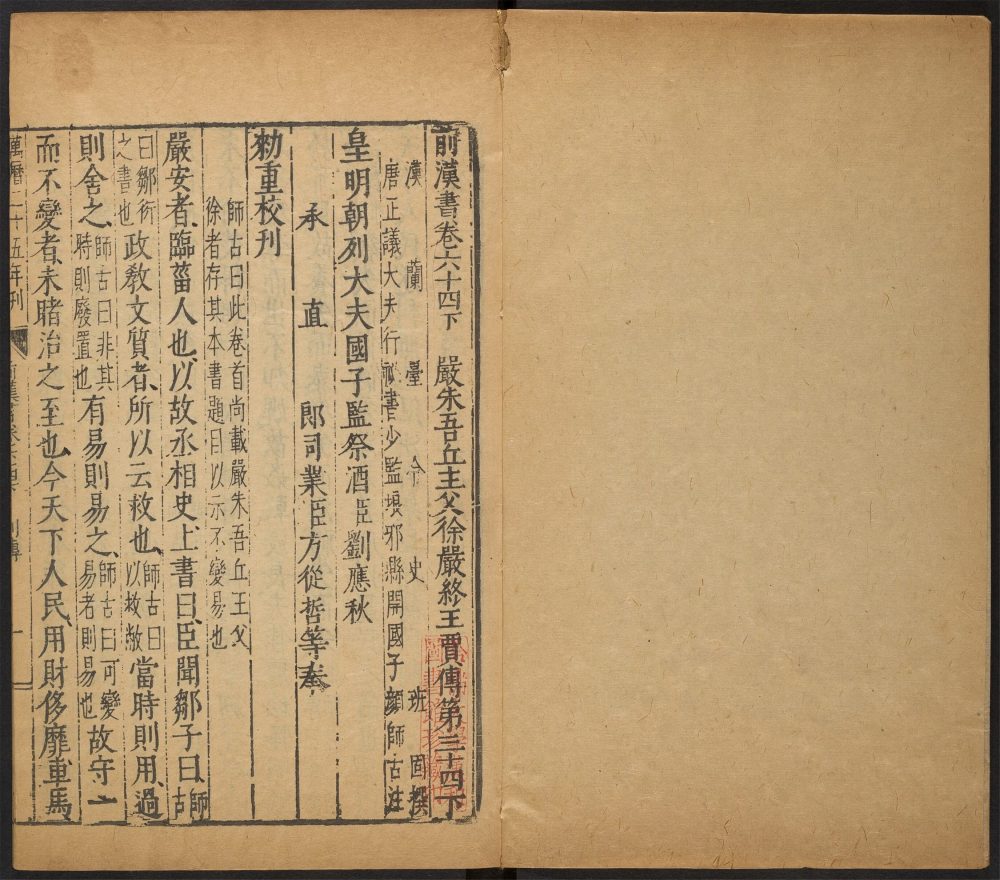 前漢書卷六十四下 嚴朱吾丘主父徐嚴終王賈傳第三十四下
漢蘭臺令史班固撰
唐正議大夫行祕書少監琅邪縣開國子顏師古注
皇明朝列大夫國子監祭酒臣劉應秋
承直郎司業臣方從哲等奉
勑重校刊
師古曰此卷首尚載嚴朱吾丘主父
徐者存其本書題目以示不變易也
嚴安者、臨菑人也、以故丞相史上書曰、臣聞鄒子曰、師古
曰鄒衍之書也政敎文質者、所以云救也、師古曰以救敝當時則用、過
則舍之、師古曰非其時則廢置也有易則易之、師古曰可變易者則易也故守一
而不變者、未睹治之至也、今天下人民、用財侈靡、車馬
萬曆二十五年刊 前漢書卷六十四下 列傳 一